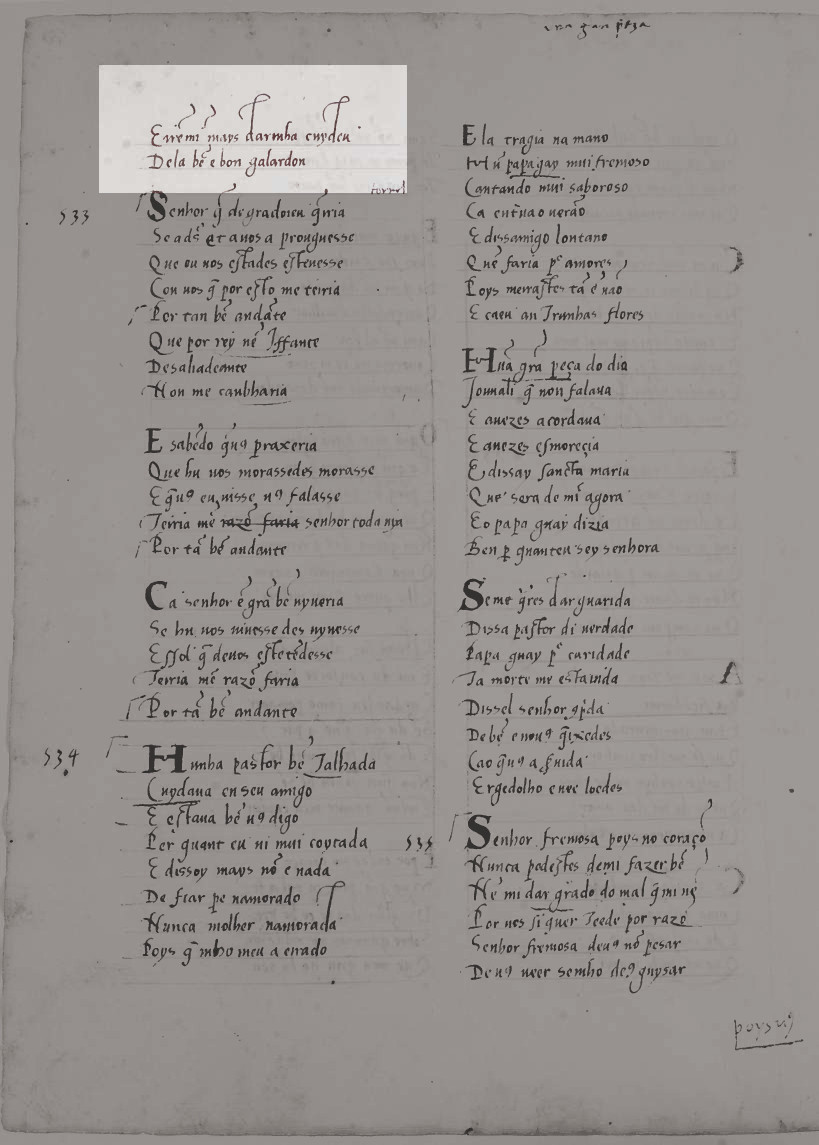 Eirẽmi mays darmha cuydeu
Dela bẽ e bon galardon
tornel
533
Senhor q̃ degradoieu q̃ria
Se ads̃ et auos a prouguesse
Que ou uos estades esteuesse
Con uos q̃ por esto me teiria
Por tan bẽ andãte
Que por rey nẽ Iffante
Desaliadeante
Non me canbharia
E sabẽdo q̃uꝯ praxeria
Que hu uos morassedes morasse
E q̃uꝯ eu uisse uꝯ falasse
Teiria mẽ razõ faria senhor toda uja
Por tã bẽ andante
Ca senhor ẽ grã bẽ uyueria
Se hu uos uiuesse des uyuesse
E ssol q̃ deuos estetẽdesse
Teiria mẽ razõ faria
Por tã bẽ andante
534
Hunha pastor bẽ Talhada
Cuydaua en seu amigo
E estaua bẽ uꝯ digo
Per quant eu ui mui coytada
E dissoy mays nõ e nada
De fiar pe namorado
Nunca molher namorada
Poys q̃ mho meu a errado
E la tragia na mano
Hũ papagay mui fremoso
Cantando mui saboroso
Ca entraua o uerão
E dissamigo lontano
Quẽ faria pᵉ amores
Poys merrastes tã ẽ uaõ
E caeu an Trunhas flores
Hũa grã peça do dia
Iouuali q̃ non falaua
E auezes acordaua
E auezes esmoreçia
E dissay sancta maria
Que sera de mĩ agora
E o papa guay dizia
Ben p̱ quanteu sey senhora
Se me q̃res dar guarida
Dissa pastor di uerdade
Papa guay pᵉ caridade
Ca morte me esta uida
Dissel senhor ꝯp̃da
De bẽ e nouꝯ q̃ixedes
Ca o q̃uꝯ a s̃uida
Ergedolho e uee loedes
535
Senhor fremosa poys no coraçõ
Nunca podestes demi fazer bẽ
Nẽ mi dar grado do mal q̃ mi uẽ
Por uos si quer Teede por razõ
Senhor fremosa deuꝯ nõ pesar
De uꝯ ueer semho deꝯ guysar
poys uꝯ